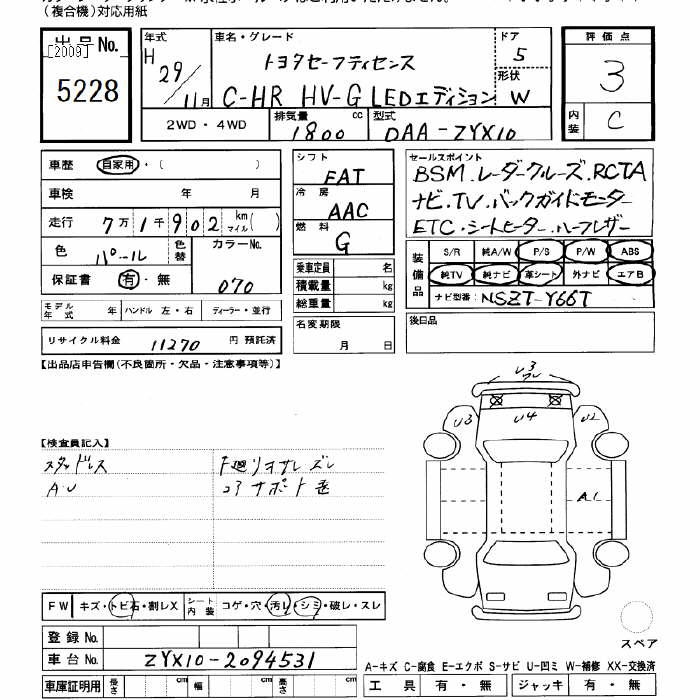 （複合機）対応用紙
出品 No.
[2009]
5228
年式 車名・グレード ドア 評価点
H 29 トヨタセーフティセンス 5 3
11月 C-HR HV-G LEDエディション 形状 W
内装 C
2WD・4WD 排気量 1800 cc 型式 DAA-ZYX10
車歴 自家用・（ ）
車検 年 月
走行 7万1千902 km マイル( )
色 パール 色替 カラーNo. 070
保証書 有・無
モデル年式 年 ハンドル 左・右 ディーラー・並行
リサイクル料金 11270 円 預託済
シフト FAT
冷房 AAC
燃料 G
乗車定員 名
積載量 kg
総重量 kg
名変期限
月 日
セールスポイント
BSM.レーダークルーズ.RCTA
ナビ.TV.バックガイドモニター
ETC.シートヒーター.ハーフレザー
装備品 S/R 純A/W P/S P/W ABS
純TV 純ナビ 革シート 外ナビ エアB
ナビ型番: NSZT-Y66T
後日品
【出品店申告欄（不良箇所・欠品・注意事項等）】
【検査員記入】
スタッドレス
AU
下廻りサビ
コアサポート
U3
U3 U4 U2
A1
FW キズ・トビ石・割レX シート内装 コゲ・穴・汚レ・シミ・破レ・スレ
登録 No.
車台 No. ZYX10-2094531
車庫証明用 長さ cm 幅 cm 高さ cm
スペア
A-キズ C-腐食 E-エクボ S-サビ U-凹ミ W-補修 XX-交換済
工具 有・無 ジャッキ 有・無